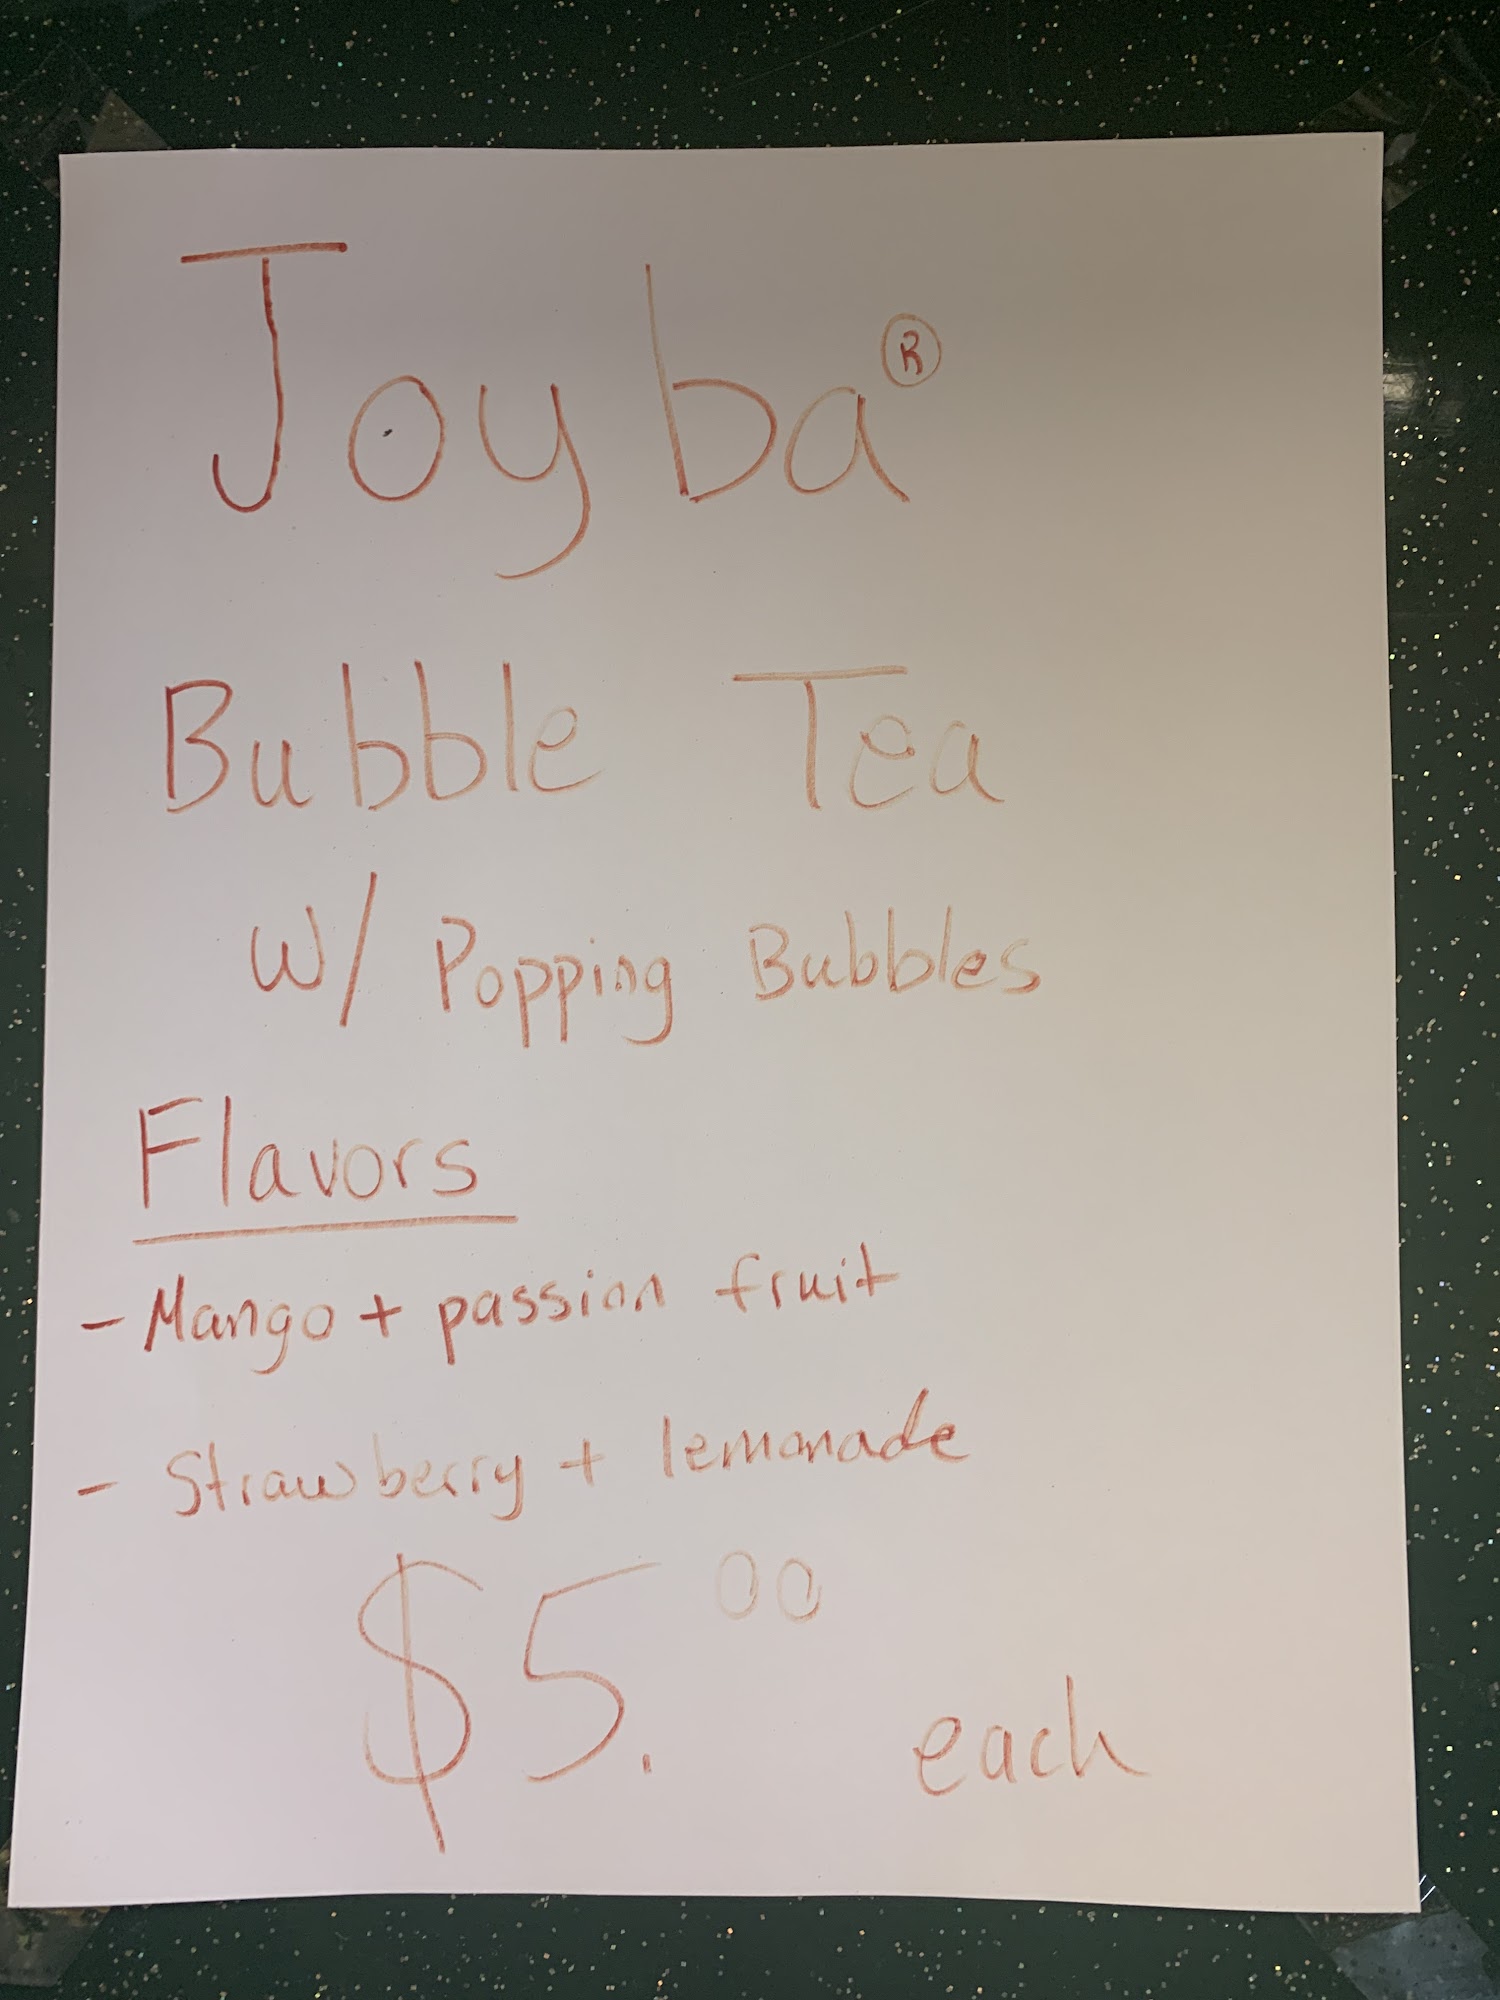 Joyba®
Bubble Tea
w/ Popping Bubbles
Flavors
- Mango + passion fruit
- Strawberry + lemonade
$5.00 each